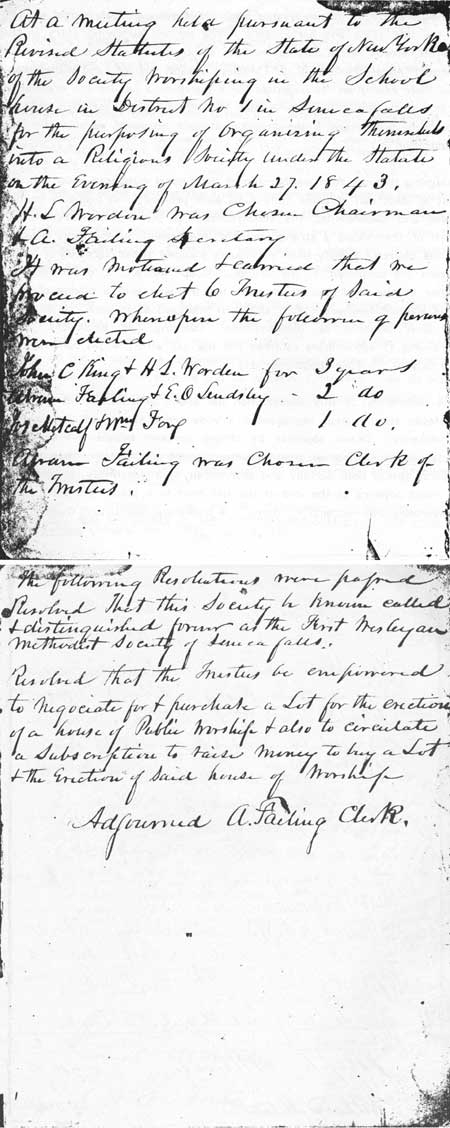 At a meeting held pursuant to the
Revised Statutes of the State of New York
of the Society Worshiping in the School
house in District No 1 in Seneca falls
for the purposing of Organizing themselves
into a Religious Society under the Statute
on the Evening of March 27. 1843.
H. S Worden was Chosen Chairman
& A. Failing Secretary
It was motioned & carried that we
proceed to elect 6 Trustees of Said
Society. Whereupon the following persons
were elected
John C King & H S. Worden for 3 years
Abram Failing & E. O Lindsley - 2 do
Jos Metcalf & Wm Fox 1 do.
Abram Failing was Chosen Clerk of
the Trustees.
The following Resolutions were passed
Resolved That this Society be Known called
& distinguished forever as the First Wesleyan
Methodist Society of Seneca falls.
Resolved that the Trustees be empowered
to negociate for & purchase a Lot for the erection
of a house of Public Worship & also to circulate
a Subscription to raise money to buy a Lot
& the Erection of Said house of Worship
Adjourned A. Failing Clerk.